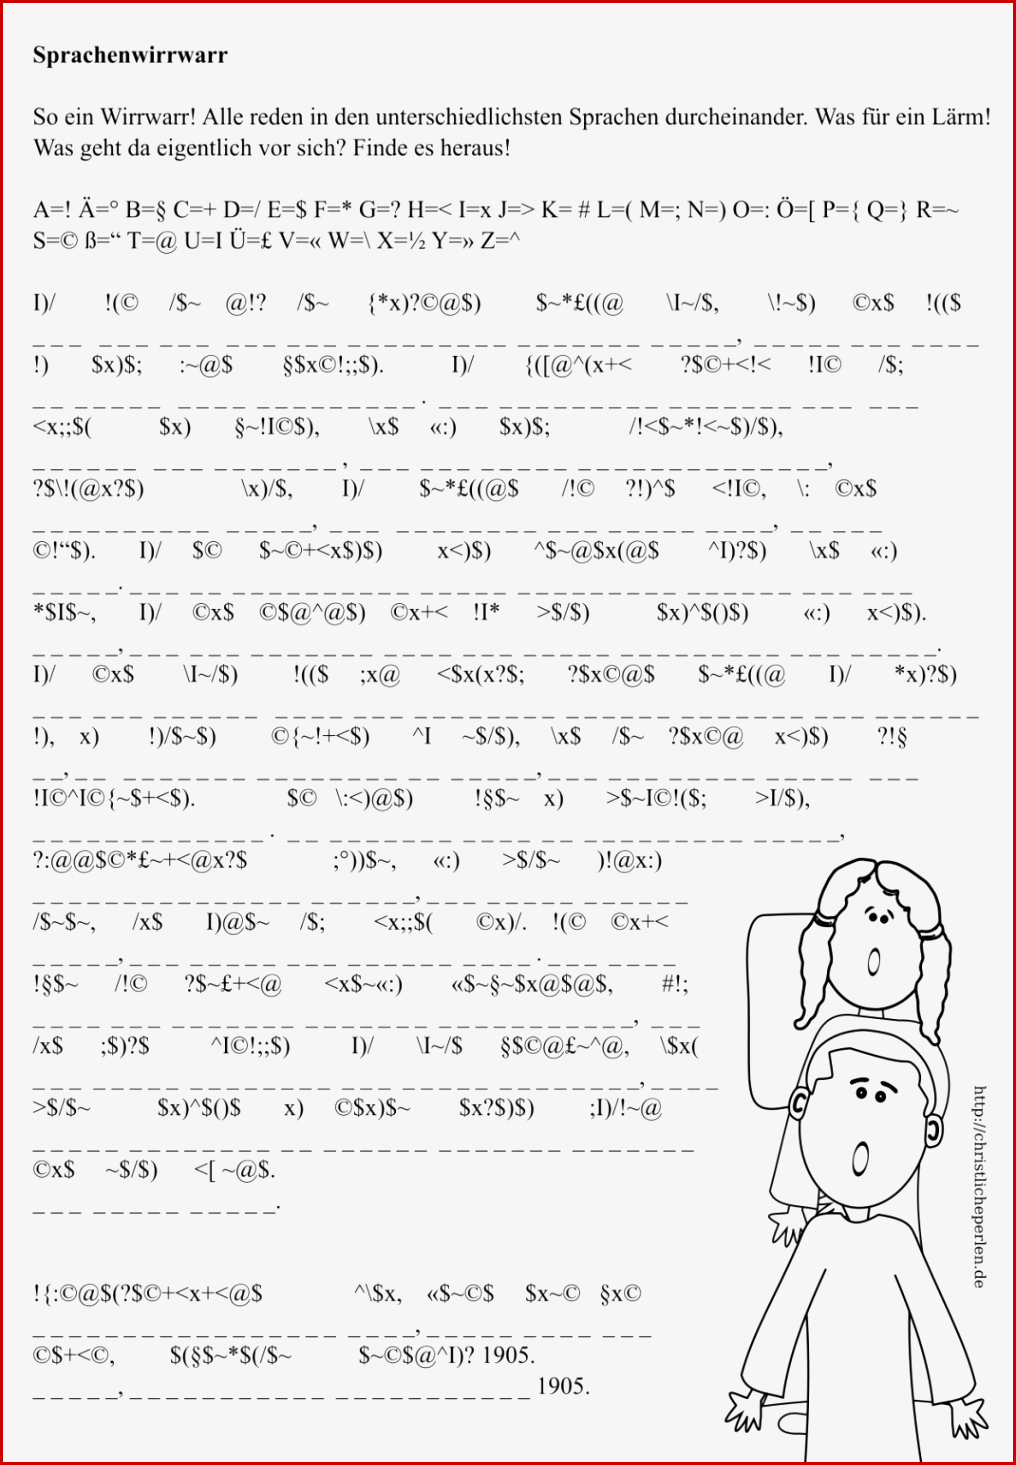 Sprachenwirrwarr
So ein Wirrwarr! Alle reden in den unterschiedlichsten Sprachen durcheinander. Was für ein Lärm!
Was geht da eigentlich vor sich? Finde es heraus!
A=! Ä=° B=§ C=+ D=/ E=$ F=* G=? H=< I=x J=> K= # L=( M=; N=) O=: Ö=[ P={ Q=} R=~
S=© ß=“ T=@ U=I Ü=£ V=« W=\ X=½ Y=» Z=^
I)/ !(© /$~ @!? /$~ {*x)?©@$) $~*£((@ \I~/$, \!~$) ©x$ !(($
_ _ _ _ _ _ _ _ _ _ _ _ _ _ _ _ _ _ _ _ _ _ _ _ _ _ _ _ _ _ _ _ _ _ _ _ _, _ _ _ _ _ _ _ _ _ _ _ _
!) $x)$; :~@$ §$x©!;;$). I)/ {([@^(x+< ?$©+<!< !I© /$;
_ _ _ _ _ _ _ _ _ _ _ _ _ _ _ _ _ _ _ _. _ _ _ _ _ _ _ _ _ _ _ _ _ _ _ _ _ _ _ _ _ _ _ _ _
<x;;$( $x) §~!I©$), \x$ «:) $x)$; /!<$~*!<~$)/$),
_ _ _ _ _ _ _ _ _ _ _ _ _ _ _ _, _ _ _ _ _ _ _ _ _ _ _ _ _ _ _ _ _ _ _ _ _ _ _ _ _,
?$\!(@x?$) \x)/$, I)/ $~*£((@$ /!© ?!)^$ <!I©, \: ©x$
_ _ _ _ _ _ _ _ _ _ _ _ _ _ _, _ _ _ _ _ _ _ _ _ _ _ _ _ _ _ _ _ _ _ _ _ _, _ _ _ _ _
©!“$). I)/ $© $~©+<x$)$) x<)$) ^$~@$x(@$ ^I)?$) \x$ «:)
_ _ _ _ _. _ _ _ _ _ _ _ _ _ _ _ _ _ _ _ _ _ _ _ _ _ _ _ _ _ _ _ _ _ _ _ _ _ _ _ _ _ _
*$I$~, I)/ ©x$ ©$@^@$) ©x+< !I* >$/$) $x)^$()$) «:) x<)$).
_ _ _ _ _, _ _ _ _ _ _ _ _ _ _ _ _ _ _ _ _ _ _ _ _ _ _ _ _ _ _ _ _ _ _ _ _ _ _ _ _ _ _ _ _.
I)/ ©x$ \I~/$) !(($ ;x@ <$x(x?$; ?$x©@$ $~*£((@ I)/ *x)?$)
_ _ _ _ _ _ _ _ _ _ _ _ _ _ _ _ _ _ _ _ _ _ _ _ _ _ _ _ _ _ _ _ _ _ _ _ _ _ _ _ _ _ _ _ _ _ _ _
!), x) !)/$~$) ©{~!+<$) ^I ~$/$), \x$ /$~ ?$x©@ x<)$) ?!§
_ _, _ _ _ _ _ _ _ _ _ _ _ _ _ _ _ _ _ _ _ _ _ _ _ _, _ _ _ _ _ _ _ _ _ _ _ _ _ _ _ _ _ _ _
!I©^I©{~$+<$). $© \:<)@$) !§$~ x) >$~I©!($; >I/$),
_ _ _ _ _ _ _ _ _ _ _ _ _. _ _ _ _ _ _ _ _ _ _ _ _ _ _ _ _ _ _ _ _ _ _ _ _ _ _ _ _,
?:@@$©*£~+<@x?$ ;°))$~, «:) >$/$~ )!@x:)
_ _ _ _ _ _ _ _ _ _ _ _ _ _ _ _ _ _ _ _ _, _ _ _ _ _ _ _ _ _ _ _ _ _ _
/$~$~, /x$ I)@$~ /$; <x;;$( ©x)/. !(© ©x+<
_ _ _ _ _, _ _ _ _ _ _ _ _ _ _ _ _ _ _ _ _ _ _ _ _ _. _ _ _ _ _ _ _
!§$~ /!© ?$~£+<@ <x$~«:) «$~§~$x@$@$, #!;
_ _ _ _ _ _ _ _ _ _ _ _ _ _ _ _ _ _ _ _ _ _ _ _ _ _ _ _ _ _ _ _ _, _ _ _
/x$ ;$)?$ ^I©!;;$) I)/ \I~/$ §$©@£~^@, \$x(
_ _ _ _ _ _ _ _ _ _ _ _ _ _ _ _ _ _ _ _ _ _ _ _ _ _ _ _ _ _ _ _, _ _ _ _
>$/$~ $x)^$()$ x) ©$x)$~ $x?$)$) ;I)/!~@
_ _ _ _ _ _ _ _ _ _ _ _ _ _ _ _ _ _ _ _ _ _ _ _ _ _ _ _ _ _ _ _ _ _ _
©x$ ~$/$) <[ ~@$.
_ _ _ _ _ _ _ _ _ _ _ _ _.
!{:©@$(?$©+<x+<@$ ^\$x, «$~©$ $x~© §x©
_ _ _ _ _ _ _ _ _ _ _ _ _ _ _ _ _ _ _ _ _, _ _ _ _ _ _ _ _ _ _ _ _
©$+<©, $(§$~*$(/$~ $~©$@^I)? 1905.
_ _ _ _ _, _ _ _ _ _ _ _ _ _ _ _ _ _ _ _ _ _ _ 1905.
http://christlicheperlen.de